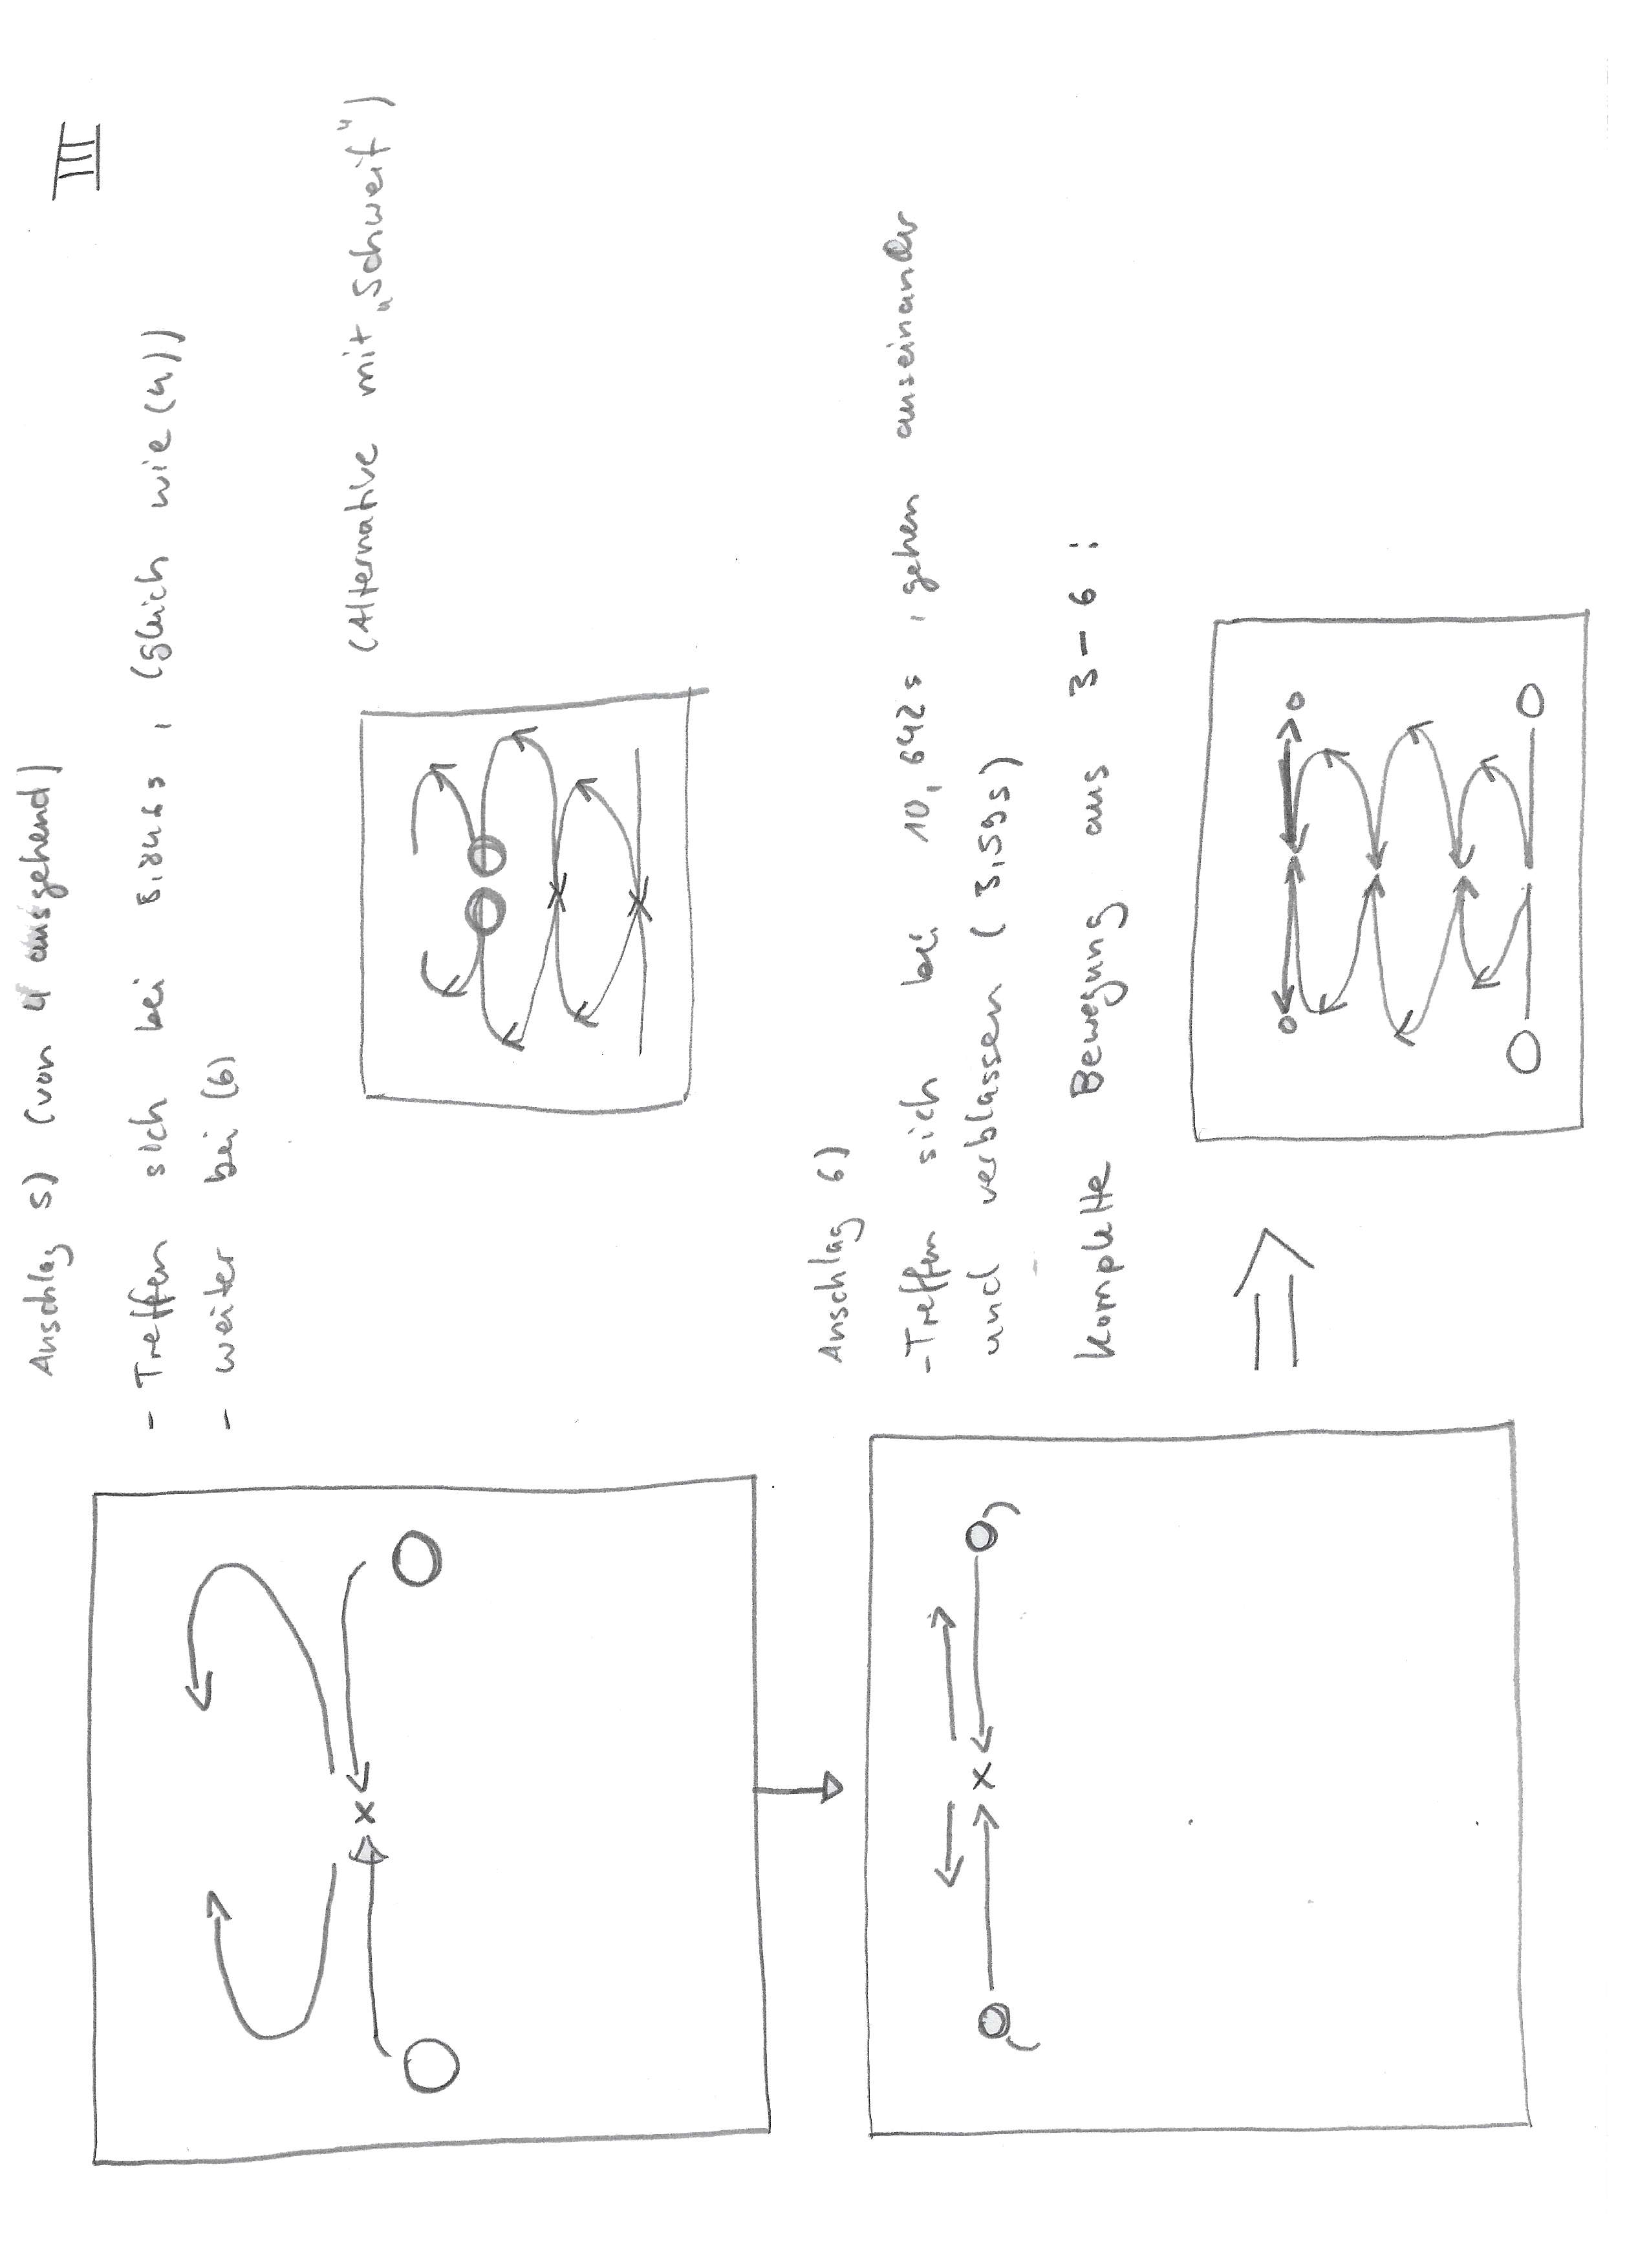 III
Anschlag 5) (von 4 ausgehend)
- Treffen sich bei , (gleich wie (4))
- weiter bei (6)
(Alternative mit „Schweif“)
Anschlag 6)
-Treffen sich bei 10,642s , gehen auseinander
und verblassen (3,59s)
Komplette Bewegung aus 3-6 :